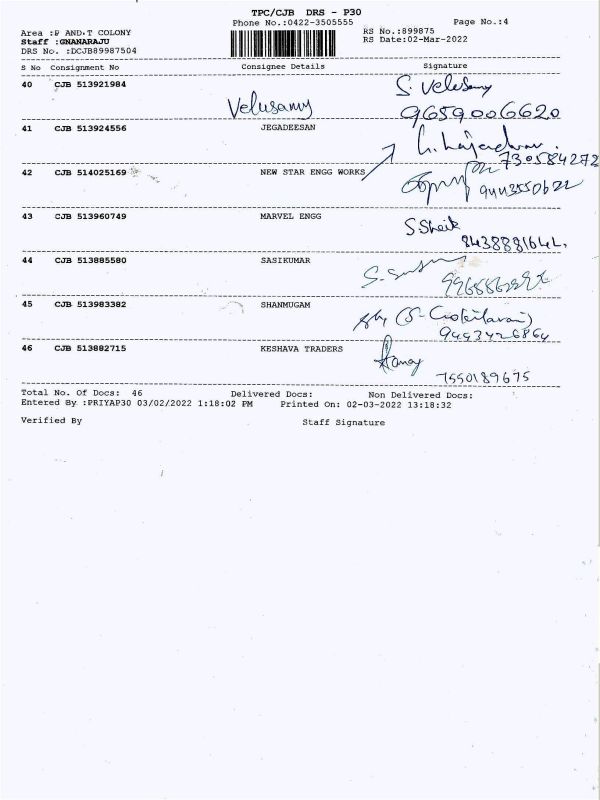 TPC/CJB DRS - P30
Phone No.:0422-3505555 Page No.:4
Area :P AND.T COLONY RS No.:899875
Staff :GNANARAJU RS Date:02-Mar-2022
DRS No. :DCJB89987504
S No Consignment No Consignee Details Signature
40 CJB 513921984 Velusamy S. Velusamy
9659006620
41 CJB 513924556 JEGADEESAN
730584272
42 CJB 514025169 NEW STAR ENGG WORKS
9443550622
43 CJB 513960749 MARVEL ENGG S. Sheik
44 CJB 513885580 SASIKUMAR
45 CJB 513983382 SHANMUGAM
9443426864
46 CJB 513882715 KESHAVA TRADERS
7550189675
Total No. Of Docs: 46 Delivered Docs: Non Delivered Docs:
Entered By :PRIYAP30 03/02/2022 1:18:02 PM Printed On: 02-03-2022 13:18:32
Verified By Staff Signature